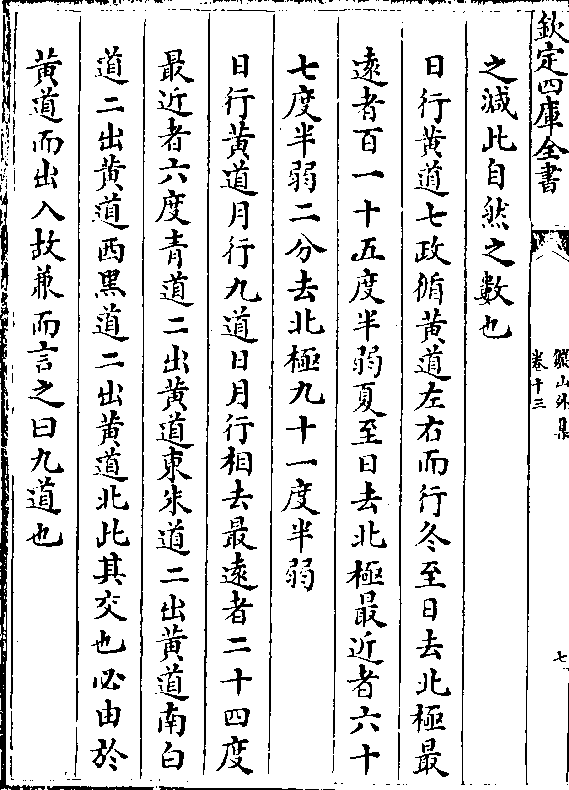 欽定四庫全書
卷十三
七
之減此自然之數也
日行黃道七政循黃道左右而行冬至日去北極最
遠者百一十五度半弱夏至日去北極最近者六十
七度半弱二分去北極九十一度半弱
日行黃道月行九道日月行相去最遠者二十四度
最近者六度青道二出黃道東朱道二出黃道南白
道二出黃道西黑道二出黃道北此其交也必由於
黃道而出入故兼而言之曰九道也